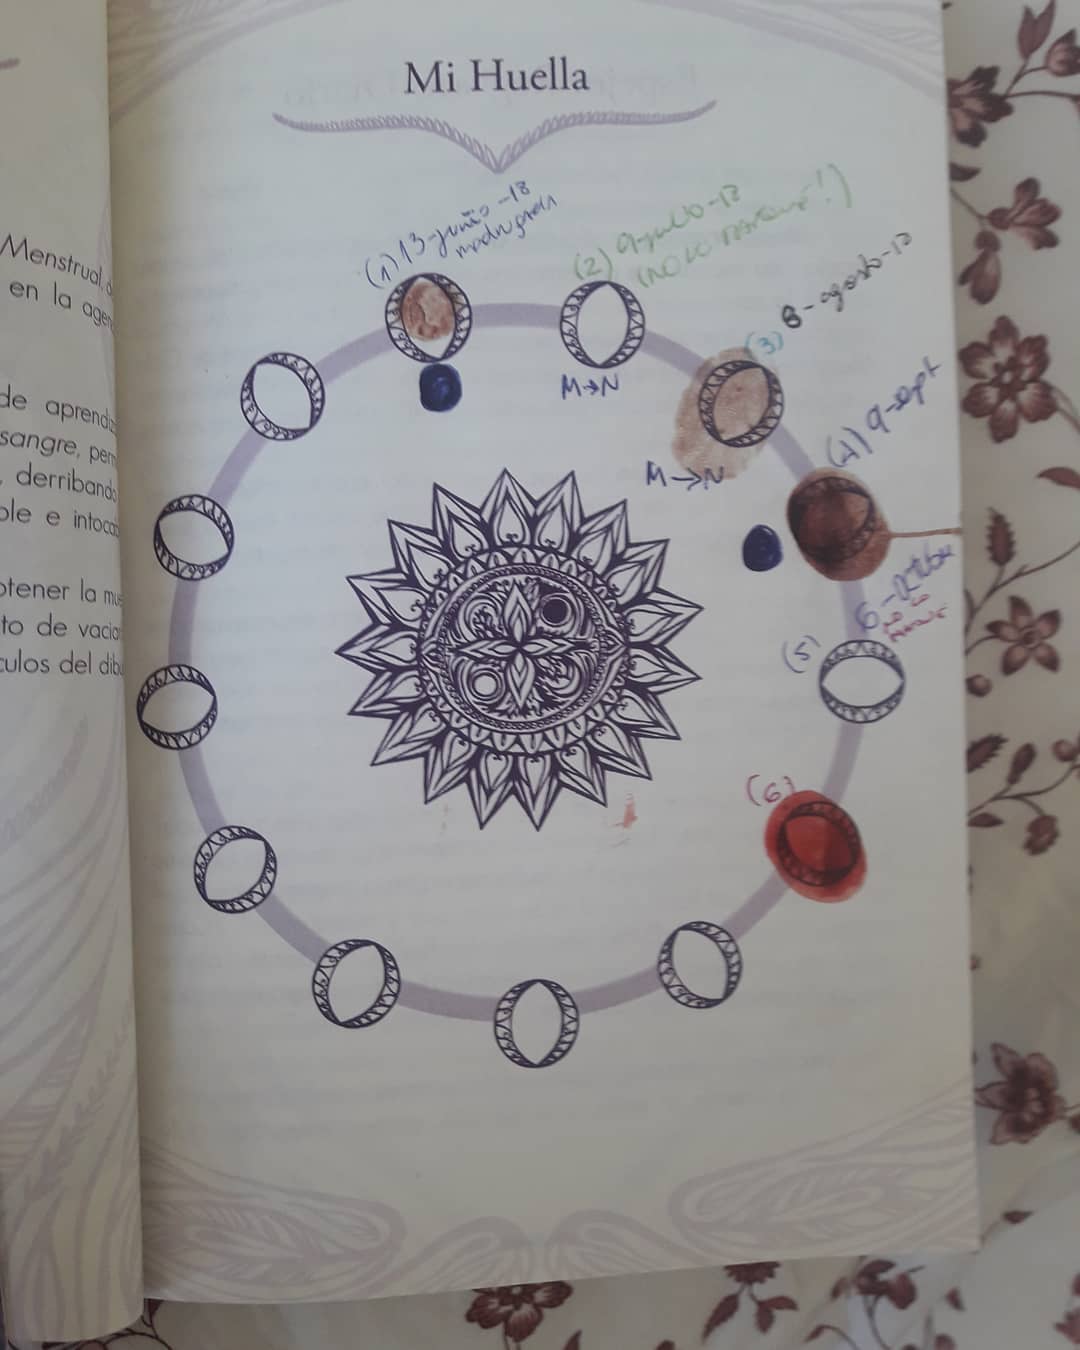 Mi Huella
Menstrual,
en la agen
de aprendiz
sangre, perm
, derribando
ble e intoca
otener la mue
to de vacia
culos del dibu
(1) 13-junio-18
madrugada
(2) 9-julio-18
(NO LO MARQUÉ!)
(3) 8-agosto-18
(4) 9-sept
M→N
M→N
6-octubre
NO LO
MARQUÉ
(5)
(6)